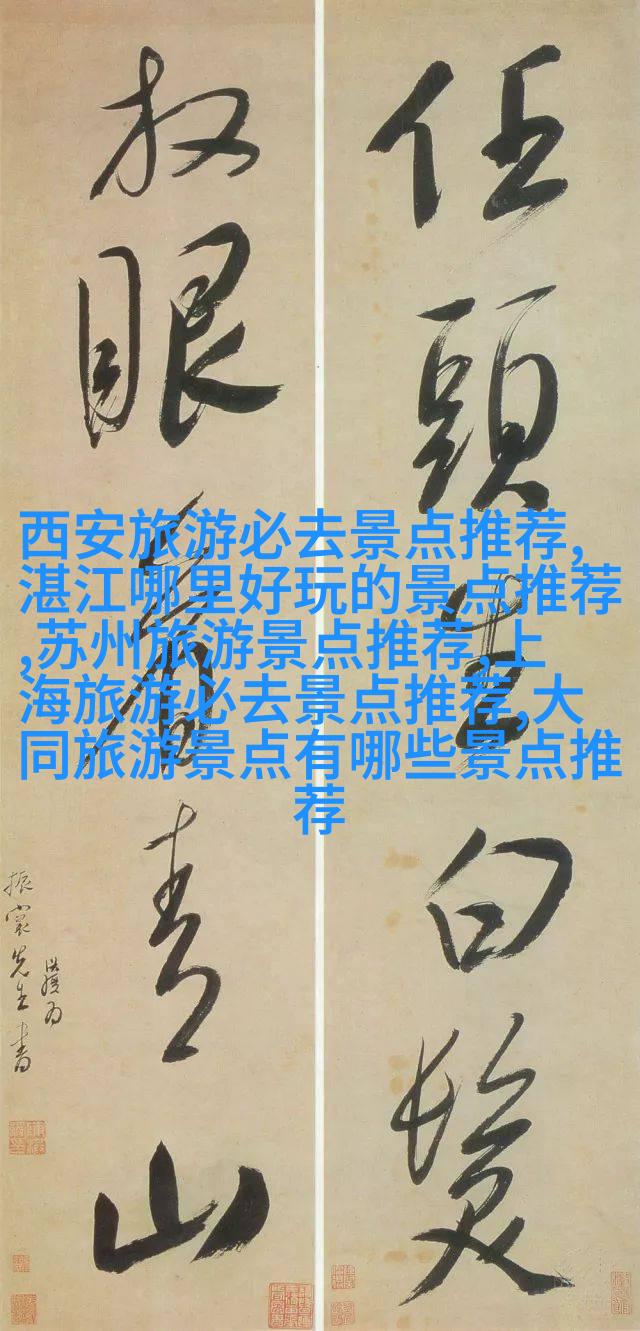 任頭生白髮
放眼看青山
振裳先生書
西安旅游必去景点推荐,
湛江哪里好玩的景点推荐
,苏州旅游景点推荐,上
海旅游必去景点推荐,大
同旅游景点有哪些景点推
荐